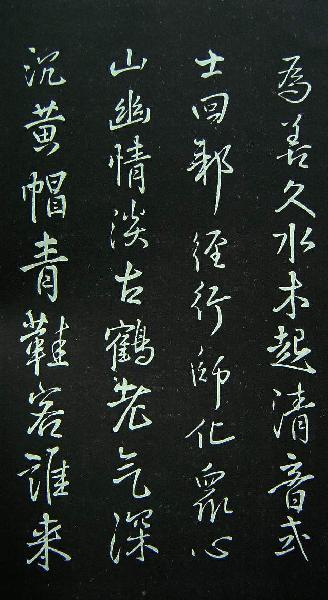 為善久水木起清音武
士回邪徑行師化眾心
山幽情淡古鶴老气深
沉黄帽青鞋客誰来